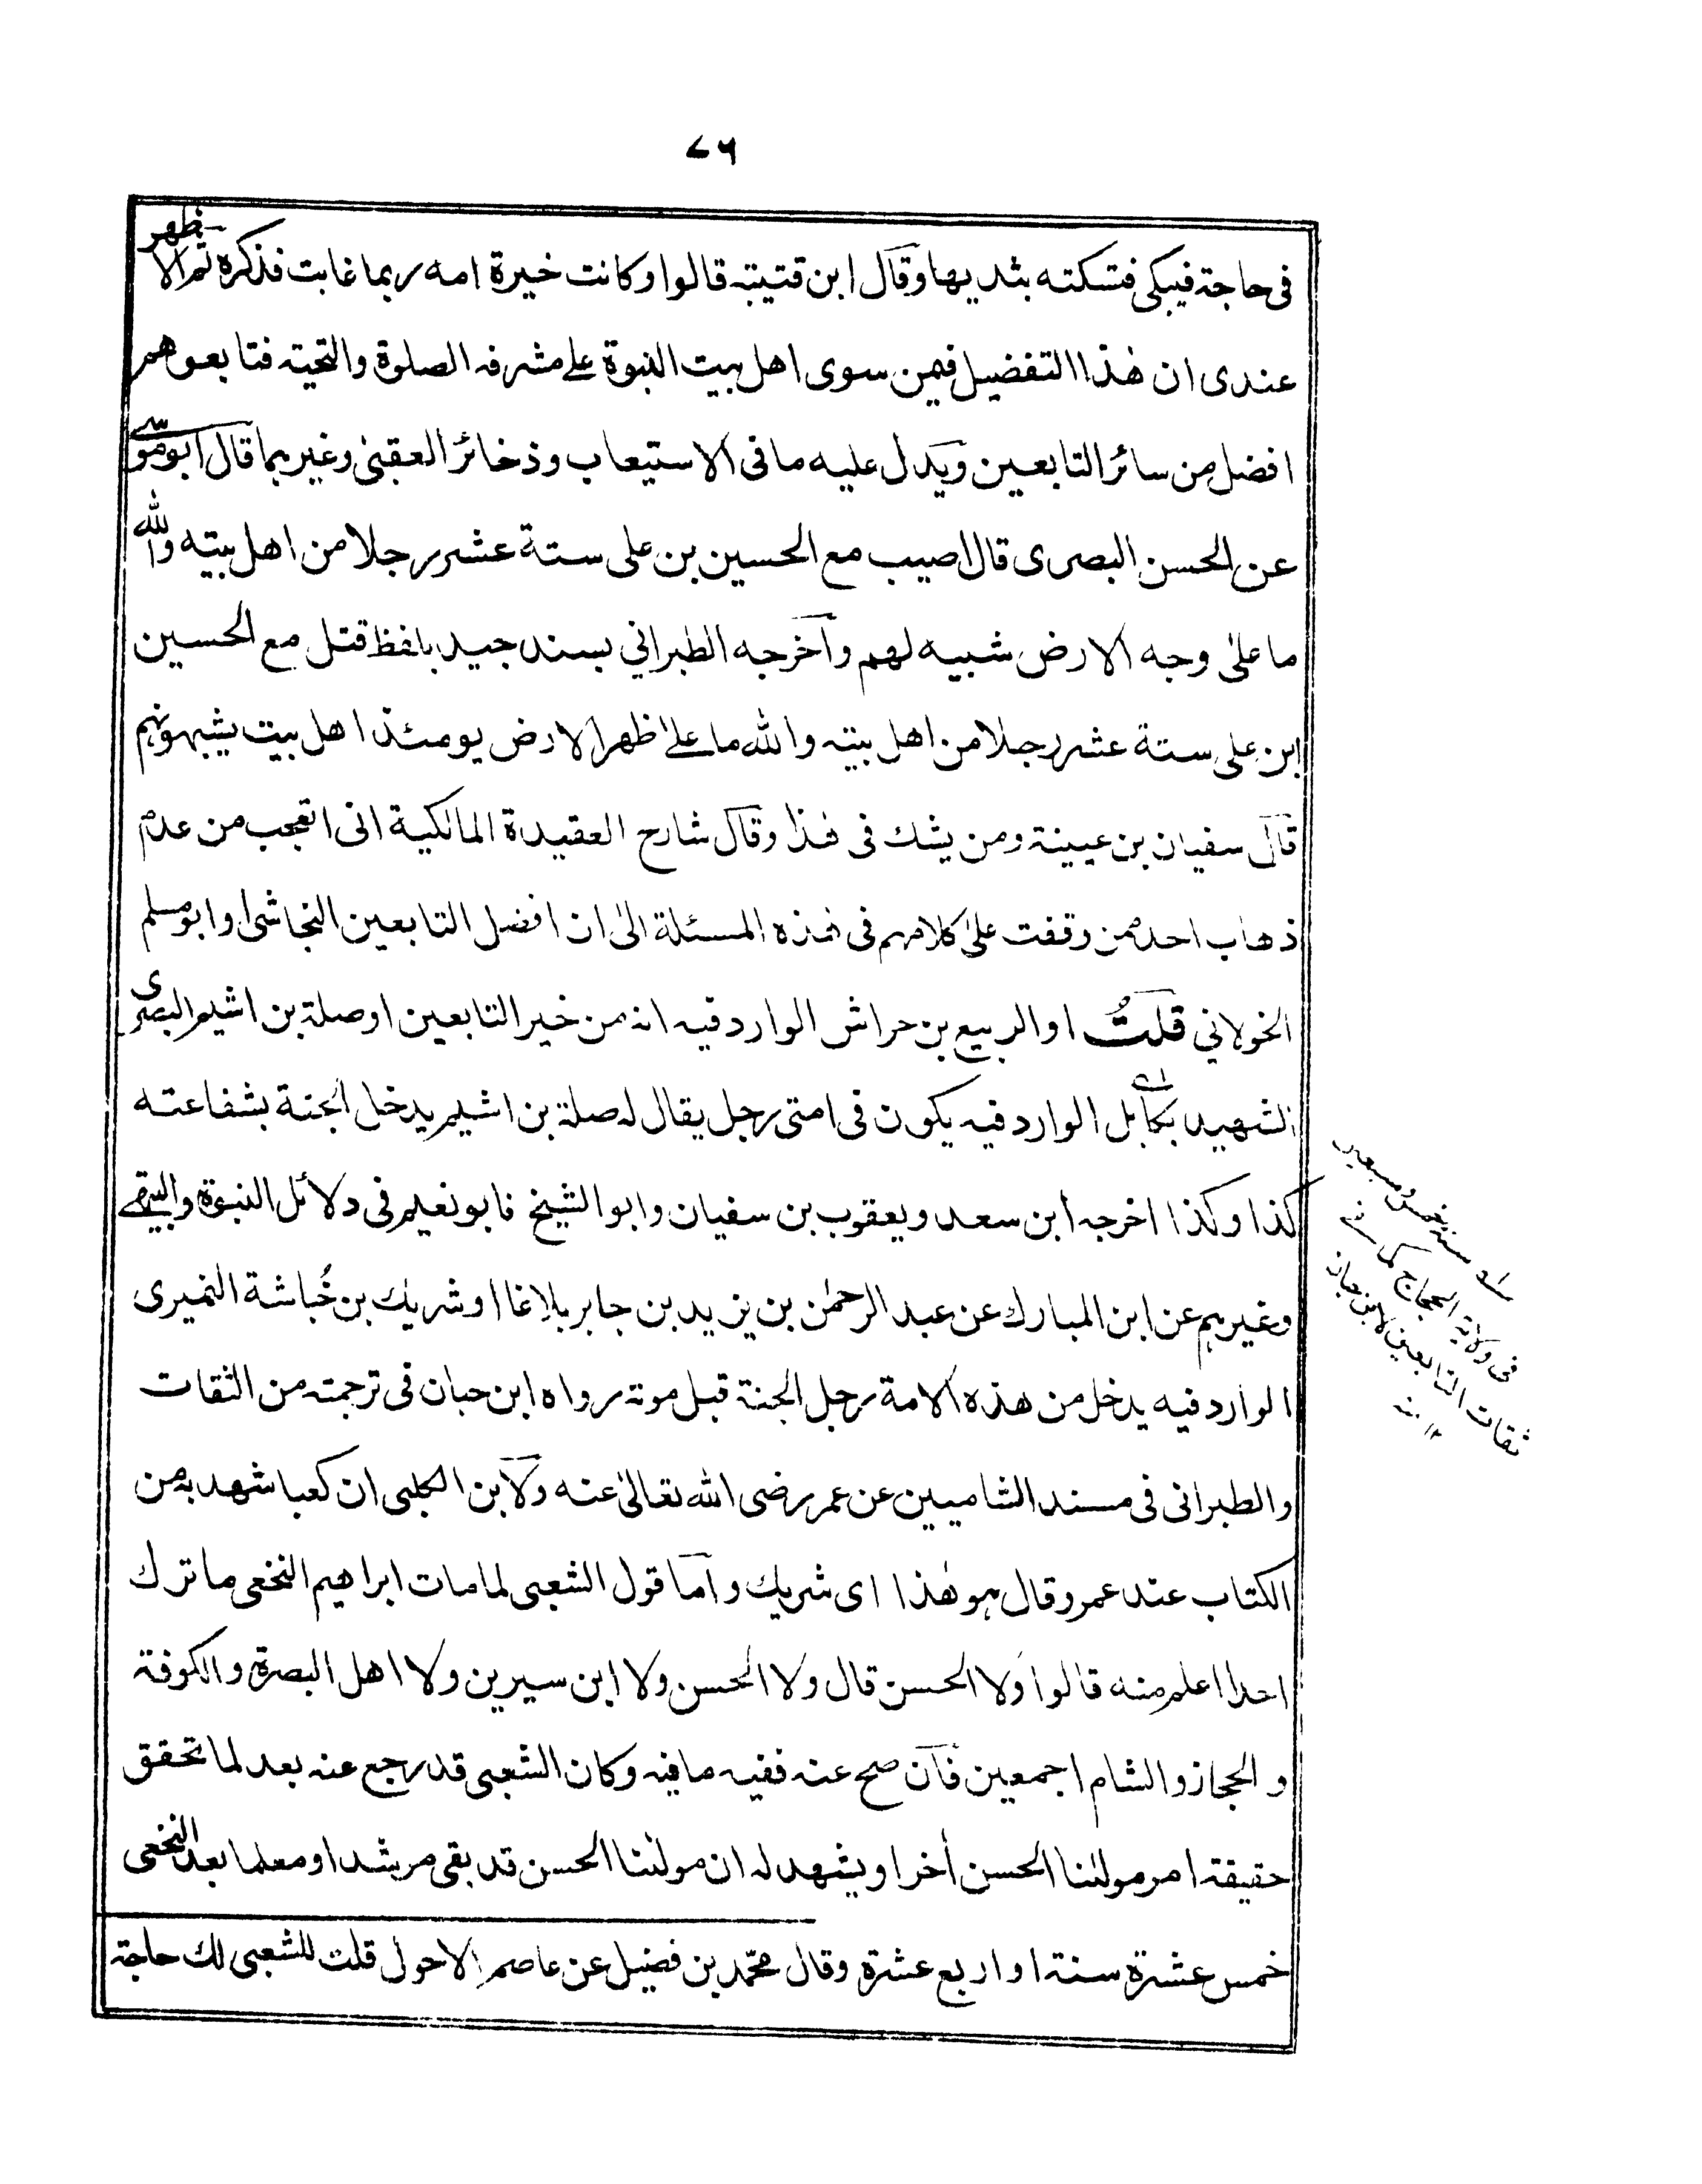 ۷۶
فى حاجة فيبكى فتسكته بثديها وقال ابن قتيبة قالوا وكانت خيرة امه ربما غابت فذكره ثم الاظهر
عندى ان هٰذا التفضيل فيمن سوى اهل بيت النبوة على مشرفه الصلوة والتحية فتابعوهم
افضل من سائر التابعين ويدل عليه ما فى الاستيعاب وذخائر العقبى وغيرهما قال ابو موسى
عن الحسن البصرى قال اصيب مع الحسين بن على ستة عشر رجلا من اهل بيته والله
ما علىٰ وجه الارض شبيه لهم وأخرجه الطبراني بسند جيد بلفظ قتل مع الحسين
ابن على ستة عشر رجلا من اهل بيته والله ما علىٰ ظهر الارض يومئذ اهل بيت يشبهونهم
قال سفيان بن عيينة ومن يشك فى هٰذا وقال شارح العقيدة المالكية انى اتعجب من عدم
ذهاب احد ممن وقفت علىٰ كلامهم فى هٰذه المسئلة الىٰ ان افضل التابعين النجاشى او ابو مسلم
الخولاني قلتُ او الربيع بن حراش الوارد فيه انه من خير التابعين او صلة بن اشيم البصرى
الشهيد بكابل الوارد فيه يكون فى امتى رجل يقال له صلة بن اشيم يدخل الجنة بشفاعته
كذا وكذا اخرجه ابن سعد ويعقوب بن سفيان وابو الشيخ فابو نعيم فى دلائل النبوة والبيهقى
وغيرهم عن ابن المبارك عن عبد الرحمٰن بن يزيد بن جابر بلاغا او شريك بن خُباشة النميرى
الوارد فيه يدخل من هذه الامة رجل الجنة قبل موته رواه ابن حبان فى ترجمته من الثقات
والطبرانى فى مسند الشاميين عن عمر رضى الله تعالىٰ عنه ولابن الكلبى ان كعبا شهد به من
الكتاب عند عمر وقال هو هٰذا اى شريك واما قول الشعبى لما مات ابراهيم النخعى ما ترك
احدا اعلم منه قالوا ولا الحسن قال ولا الحسن ولا ابن سيرين ولا اهل البصرة والكوفة
والحجاز والشام اجمعين فان صح عنه ففيه ما فيه وكان الشعبى قد رجع عنه بعد لما تحقق
حقيقة امر مولٰنا الحسن أخرا ويشهد له ان مولٰنا الحسن قد بقى مرشدا ومعلما بعد النخعى
خمس عشرة سنة او اربع عشرة وقال محمد بن فضيل عن عاصم الاحول قلت للشعبى لك حاجة
سنة خمس وسبعين
فى ولاية الحجاج
ثقات التابعين لابن حبان
۱۲ منه